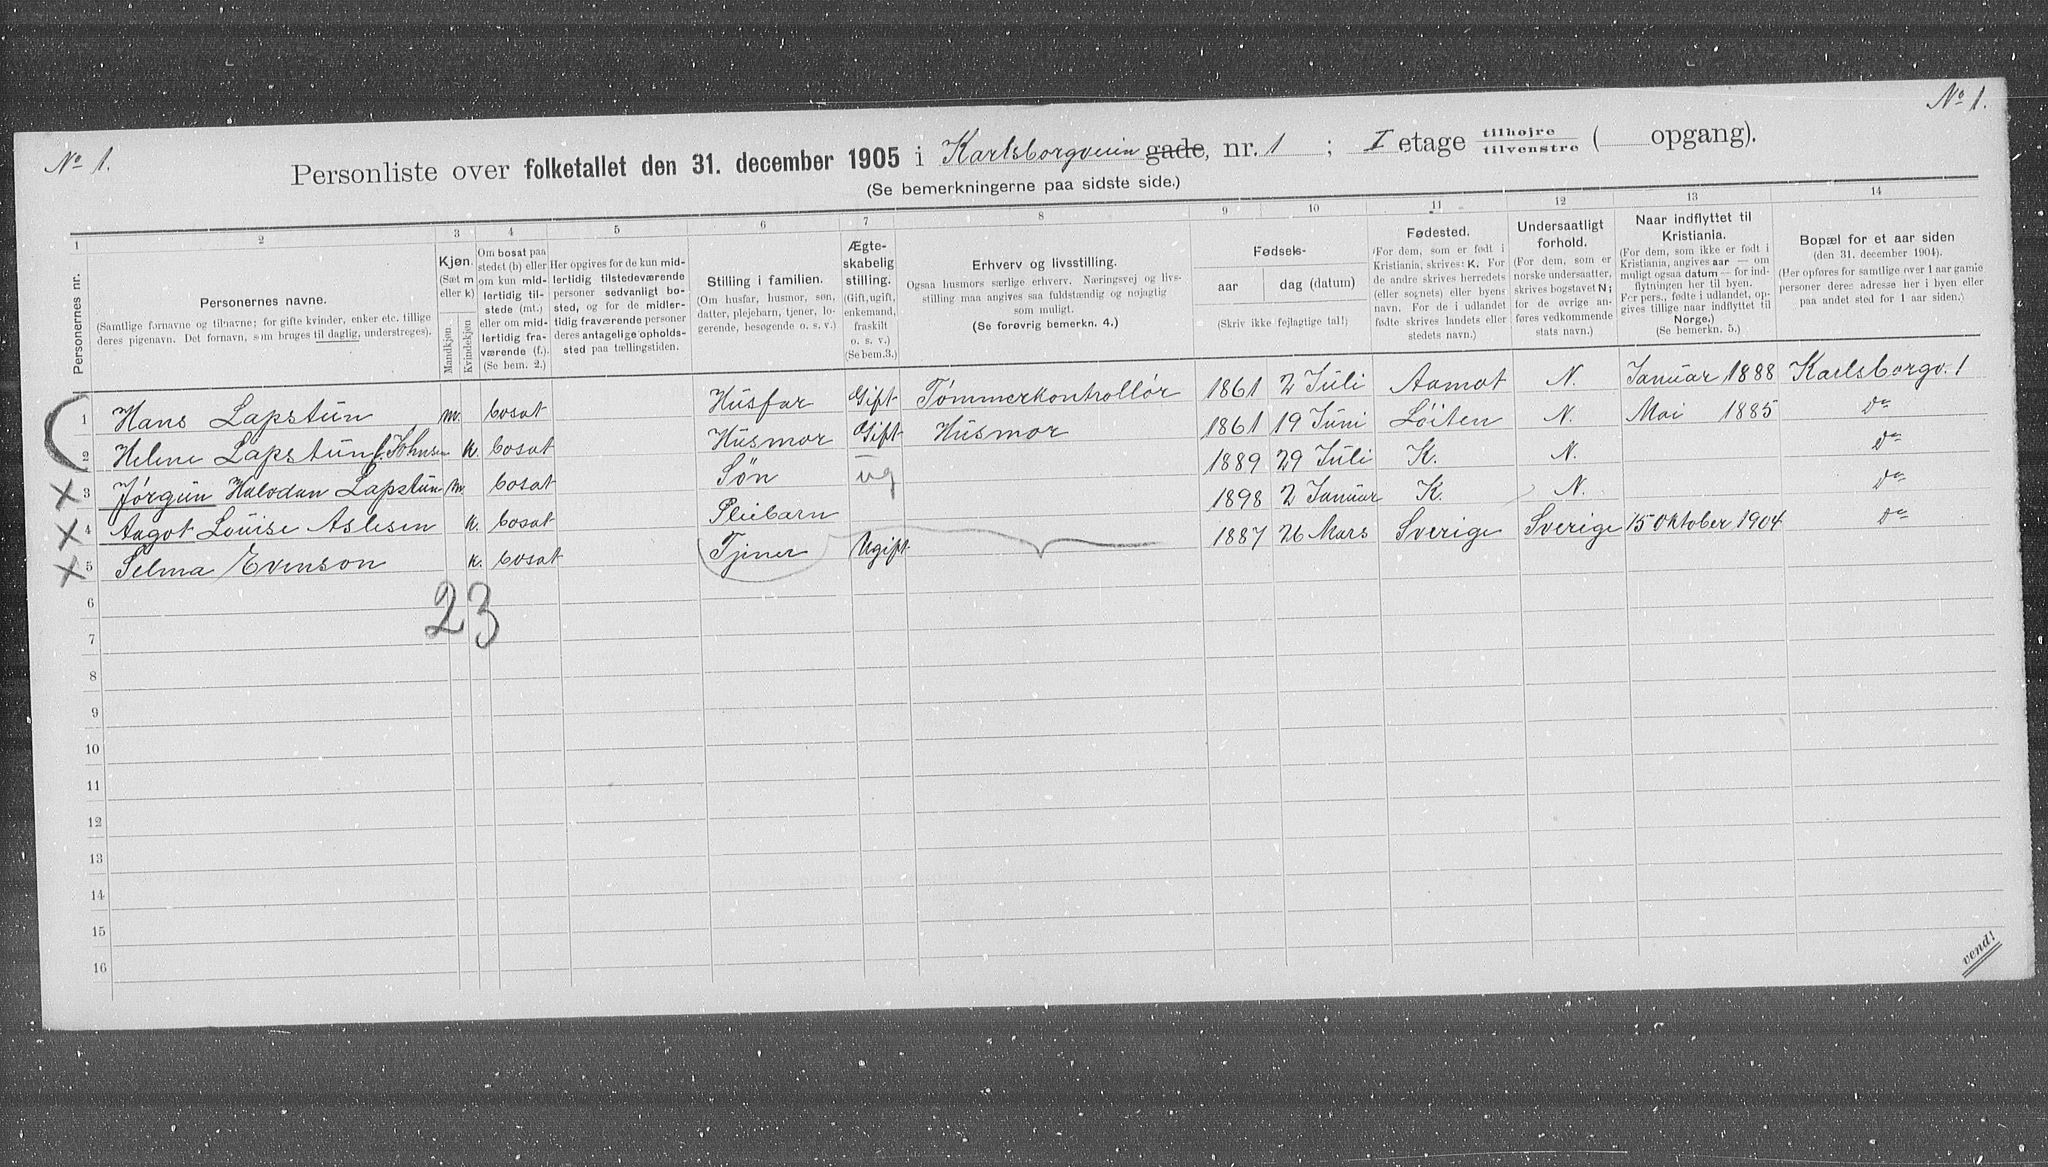 No 1.
No 1.
Personliste over folketallet den 31. december 1905 i Karlsborgveien gade, nr. 1 ; I etage tilhøjre tilvenstre ( opgang).
(Se bemerkningerne paa sidste side.)
1 2 3 4 5 6 7 8 9 10 11 12 13 14
Personernes nr.
Personernes navne.
(Samtlige fornavne og tilnavne; for gifte kvinder, enker etc. tillige
deres pigenavn. Det fornavn, som bruges til daglig, understreges).
Kjøn.
(Sæt m
eller k)
Mandkjøn.
Kvindekjøn
Om bosat paa
stedet (b) eller
om kun mid-
lertidig til-
stede (mt.)
eller om mid-
lertidig fra-
værende (f.).
(Se bem. 2.)
Her opgives for de kun mid-
lertidig tilstedeværende
personer sedvanlig bo-
sted, og for de midler-
tidig fraværende personer
deres antagelige opholds-
sted paa tællingstiden.
Stilling i familien.
(Om husfar, husmor, søn,
datter, plejebarn, tjener, lo-
gerende, besøgende o. s. v.)
Ægte-
skabelig
stilling.
(Gift, ugift,
enkemand,
fraskilt
o. s. v.)
(Se bem. 3.)
Erhverv og livsstilling.
Ogsaa husmors særlige erhverv. Næringsvej og livs-
stilling maa angives saa fuldstændig og nøjagtig
som muligt.
(Se forøvrig bemerkn. 4.)
Fødsels-
aar dag (datum)
(Skriv ikke fejlagtige tal!)
Fødested.
(For dem, som er født i
Kristiania, skrives: K. For
de andre skrives herredets
(eller sognets) eller byens
navn. For de i udlandet
fødte skrives landets eller
stedets navn.)
Undersaatligt
forhold.
(For dem, som er
norske undersaatter,
skrives bogstavet N;
for de øvrige an-
føres vedkommende
stats navn.)
Naar indflyttet til
Kristiania.
(For dem, som ikke er født i
Kristiania, angives aar — om
muligt ogsaa datum — for ind-
flytningen her til byen.
For pers., fødte i udlandet, op-
gives tillige naar indflyttet til
Norge.)
(Se bemerkn. 5.)
Bopæl for et aar siden
(den 31. december 1904).
(Her opføres for samtlige over 1 aar gamle
personer deres adresse her i byen eller
paa andet sted for 1 aar siden.)
1 Hans Lapstun m. bosat Husfar Gift Tømmerkontrollør 1861 2 Juli Aamot N. Januar 1888 Karlsborgv. 1
2 Helene Lapstun f. Johnsen k. bosat Husmor Gift Husmor 1861 19 Juni Løiten N. Mai 1885 Do
3 Jørgun Halvdan Lapstun m. bosat Søn ug 1889 29 Juli K. N. Do
4 Aagot Louise Aslesen k. bosat Pleiebarn 1898 2 Januar K. N. Do
5 Selma Evenson k. bosat Tjener Ugift 1887 26 Mars Sverige Sverige 15 Oktober 1904 Do
23
6
7
8
9
10
11
12
13
14
15
16
vend!